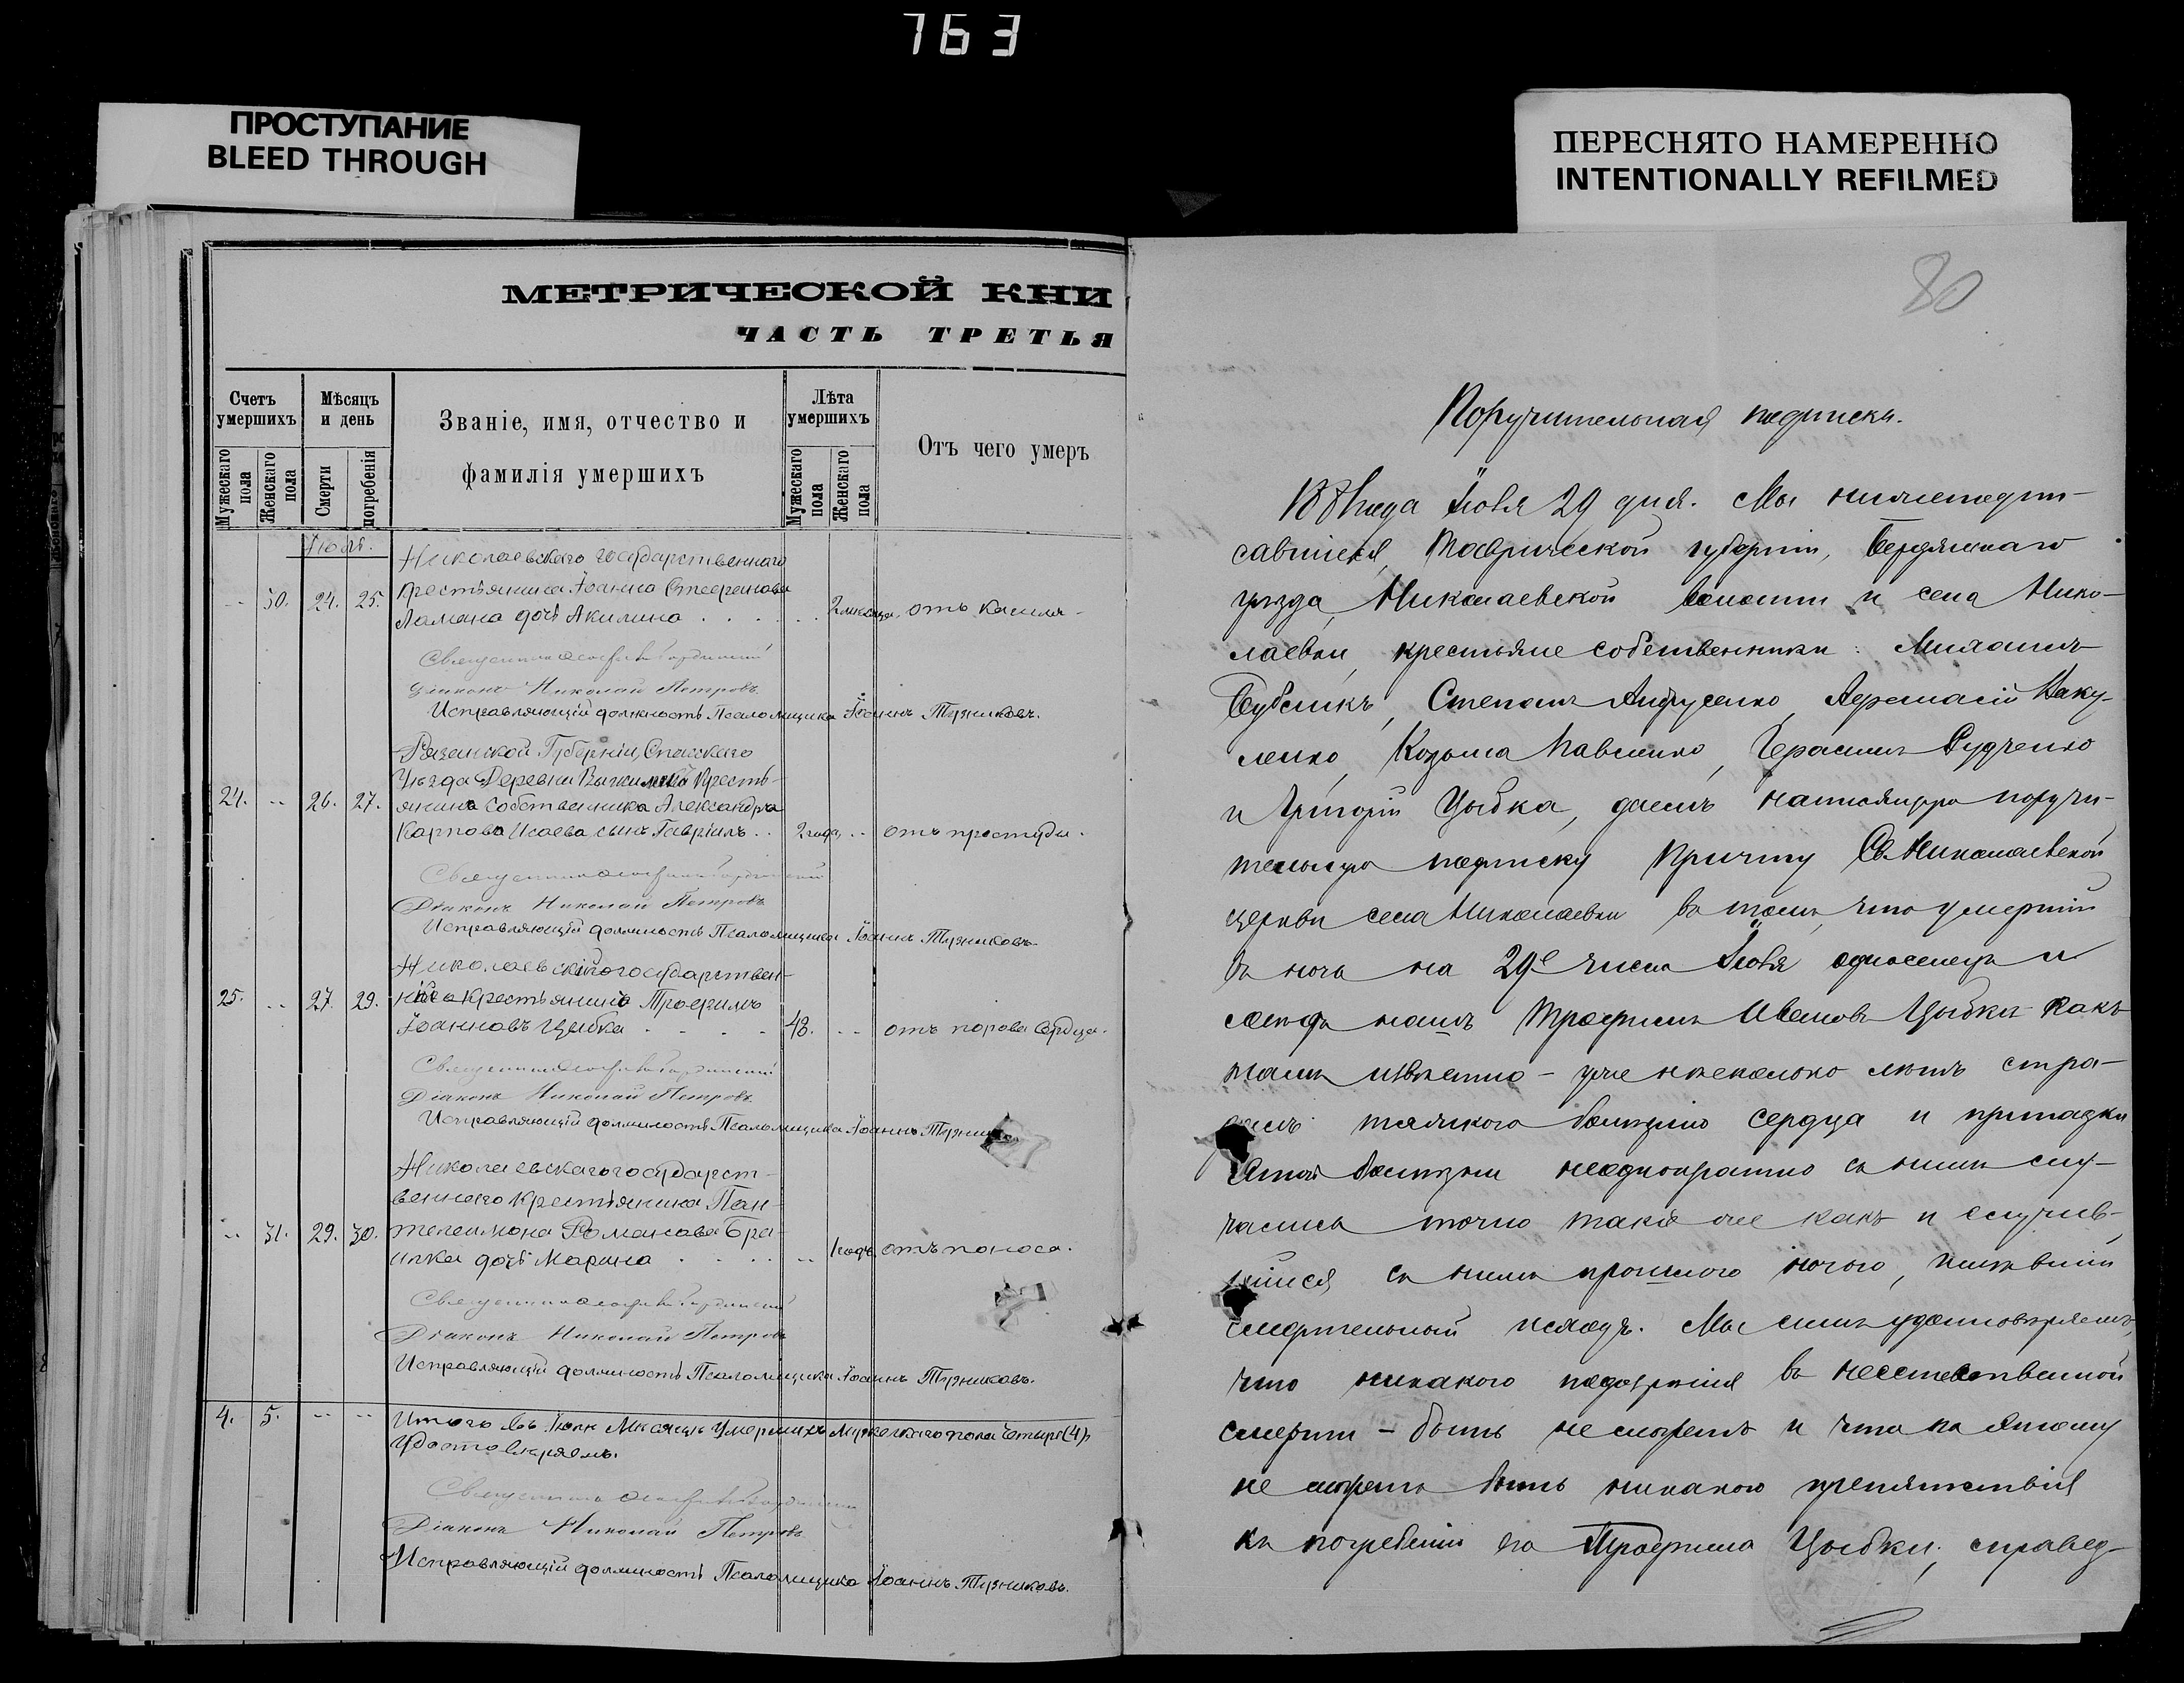 763
ПРОСТУПАНИЕ
BLEED THROUGH
ПЕРЕСНЯТО НАМЕРЕННО
INTENTIONALLY REFILMED
МЕТРИЧЕСКОЙ КНИ
ЧАСТЬ ТРЕТЬЯ
Счетъ умершихъ
Мужескаго пола
Женскаго пола
Мѣсяцъ и день
Смерти
погребенія
Званіе, имя, отчество и
фамилія умершихъ
Лѣта умершихъ
Мужескаго пола
Женскаго пола
Отъ чего умеръ
Іюль.
Николаевскаго государственнаго
-- 30. 24. 25. крестьянина Іоанна Стефанова
Ламана дочь Акилина . . . . . . 2 месяца. отъ кашля -
Священникъ
Діаконъ Николай Петровъ
Исправляющій должность Псаломщика Іоаннъ Тузниковъ.
Рязанской Губерніи, Спасскаго
Уѣзда Деревни Кресть-
24. -- 26. 27. янина собственника Александра
Карпова Исаева сынъ Гавріилъ . . 2 года, -- отъ простуды.
Священникъ
Діаконъ Николай Петровъ
Исправляющій должность Псаломщика Іоаннъ Тузниковъ.
Николаевскій государствен-
25. -- 27. 29. ный крестьянинъ Трофимъ
Іоанновъ Цыбка - - - - 48. -- отъ порока сердца.
Священникъ
Діаконъ Николай Петровъ
Исправляющій должность Псаломщика Іоаннъ
Николаевскаго государст-
веннаго крестьянина Пан-
-- 31. 29. 30. телеимона Романова
дочь Марина . . . . -- 1 годъ отъ поноса.
Священникъ
Діаконъ Николай Петровъ
Исправляющій должность Псаломщика Іоаннъ Тузниковъ.
4. 5. -- -- Итого въ Іюлѣ Мѣсяцѣ Умершихъ мужескаго пола четыре (4),
Удостовѣряемъ.
Священникъ
Діаконъ Николай Петровъ
Исправляющій должность Псаломщика Іоаннъ Тузниковъ.
80
Поручительная подписка.
года Іюля 29 дня. Мы нижеподпи-
савшіеся, Таврической губерніи, Бердянскаго
уѣзда, Николаевской волости и села Нико-
лаевки, крестьяне собственники: Михаилъ
Бубликъ, Степанъ Андрусенко, Аѳанасій Наку-
ленко, Козьма Павленко, Герасимъ Рудченко
и Григорій Цыбка, даемъ настоящую поручи-
тельную подписку Причту Св. Николаевской
церкви села Николаевки въ томъ, что умершій
въ ночь на 29е число Іюля односелецъ и
сосѣдъ нашъ Трофимъ Ивановъ Цыбка - какъ
намъ извѣстно - уже нѣсколько лѣтъ стра-
далъ тяжкою болѣзнію сердца и припадки
этой болѣзни неоднократно съ нимъ слу-
чались точно такіе же какъ и случив-
шійся съ нимъ прошлою ночью, имѣвшій
смертельный исходъ. Мы симъ удостовѣряемъ,
что никакого подозрѣнія въ неестественной
смерти - быть не можетъ и что по этому
не можетъ быть никакого препятствія
къ погребенію его Трофима Цыбки; справед-